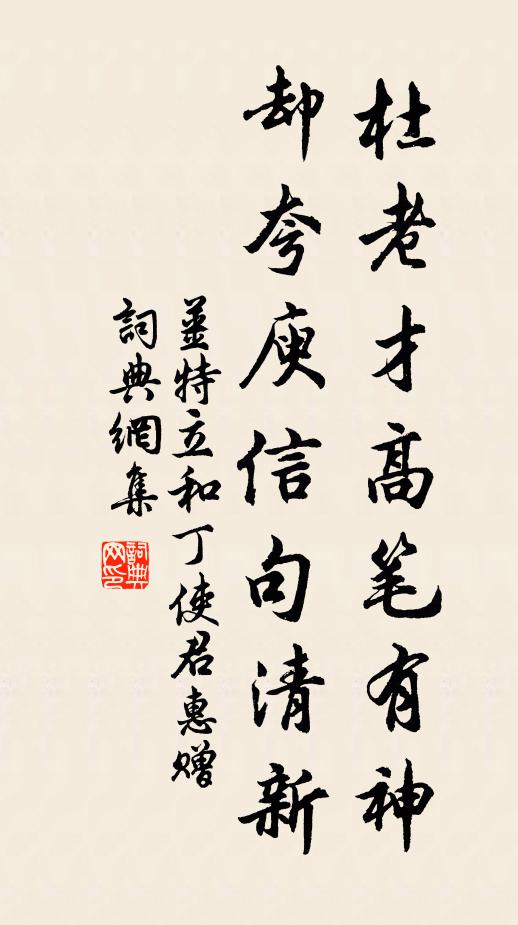 杜老才高笔有神
却夸庾信句清新
姜特立和丁使君惠赠
詞典網集
詞典
网印